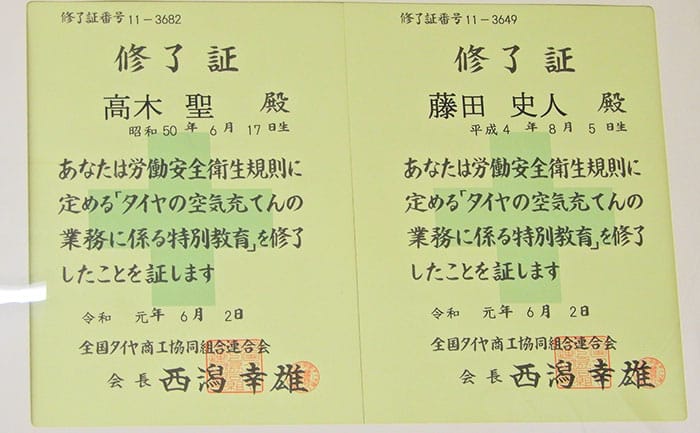 修了証番号11-3682
修了証
高木 聖 殿
昭和50年6月17日生
あなたは労働安全衛生規則に
定める「タイヤの空気充てんの
業務に係る特別教育」を修了
したことを証します
令和 元年 6月 2日
全国タイヤ商工協同組合連合会
会長 西潟幸雄
修了証番号11-3649
修了証
藤田 史人 殿
平成4年8月5日生
あなたは労働安全衛生規則に
定める「タイヤの空気充てんの
業務に係る特別教育」を修了
したことを証します
令和 元年 6月 2日
全国タイヤ商工協同組合連合会
会長 西潟幸雄